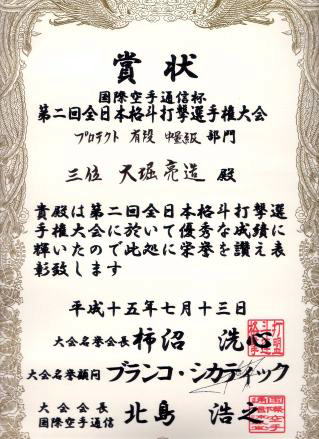 賞状
国際空手通信杯
第二回全日本格斗打撃選手権大会
プロテクト 有段 中量級 部門
三位 大堀亮造 殿
貴殿は第二回全日本格斗打撃選
手権大会に於いて優秀な成績に
輝いたので此処に栄誉を讃え表
彰致します
平成十五年七月十三日
大会名誉会長 柿沼 洗心
大会名誉顧問 ブランコ・シカティック
大会会長
国際空手通信 北島 浩之